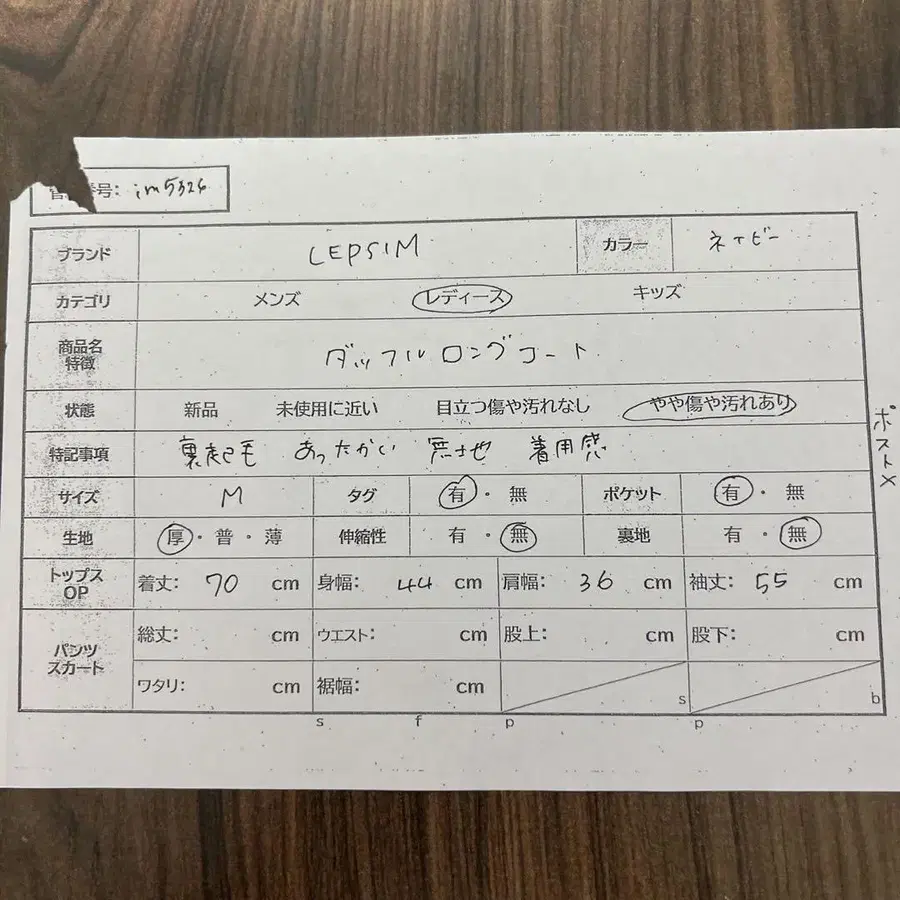 番号: im5326
ブランド LEPSIM カラー ネイビー
カテゴリ メンズ レディース キッズ
商品名 特徴 ダッフルロングコート
状態 新品 未使用に近い 目立つ傷や汚れなし やや傷や汚れあり
特記事項 裏起毛 あったかい 無地 着用感
サイズ M タグ 有・無 ポケット 有・無
生地 厚・普・薄 伸縮性 有・無 裏地 有・無
トップス OP 着丈: 70 cm 身幅: 44 cm 肩幅: 36 cm 袖丈: 55 cm
パンツ スカート 総丈: cm ウエスト: cm 股上: cm 股下: cm
ワタリ: cm 裾幅: cm s b
s f p p
ポスト×